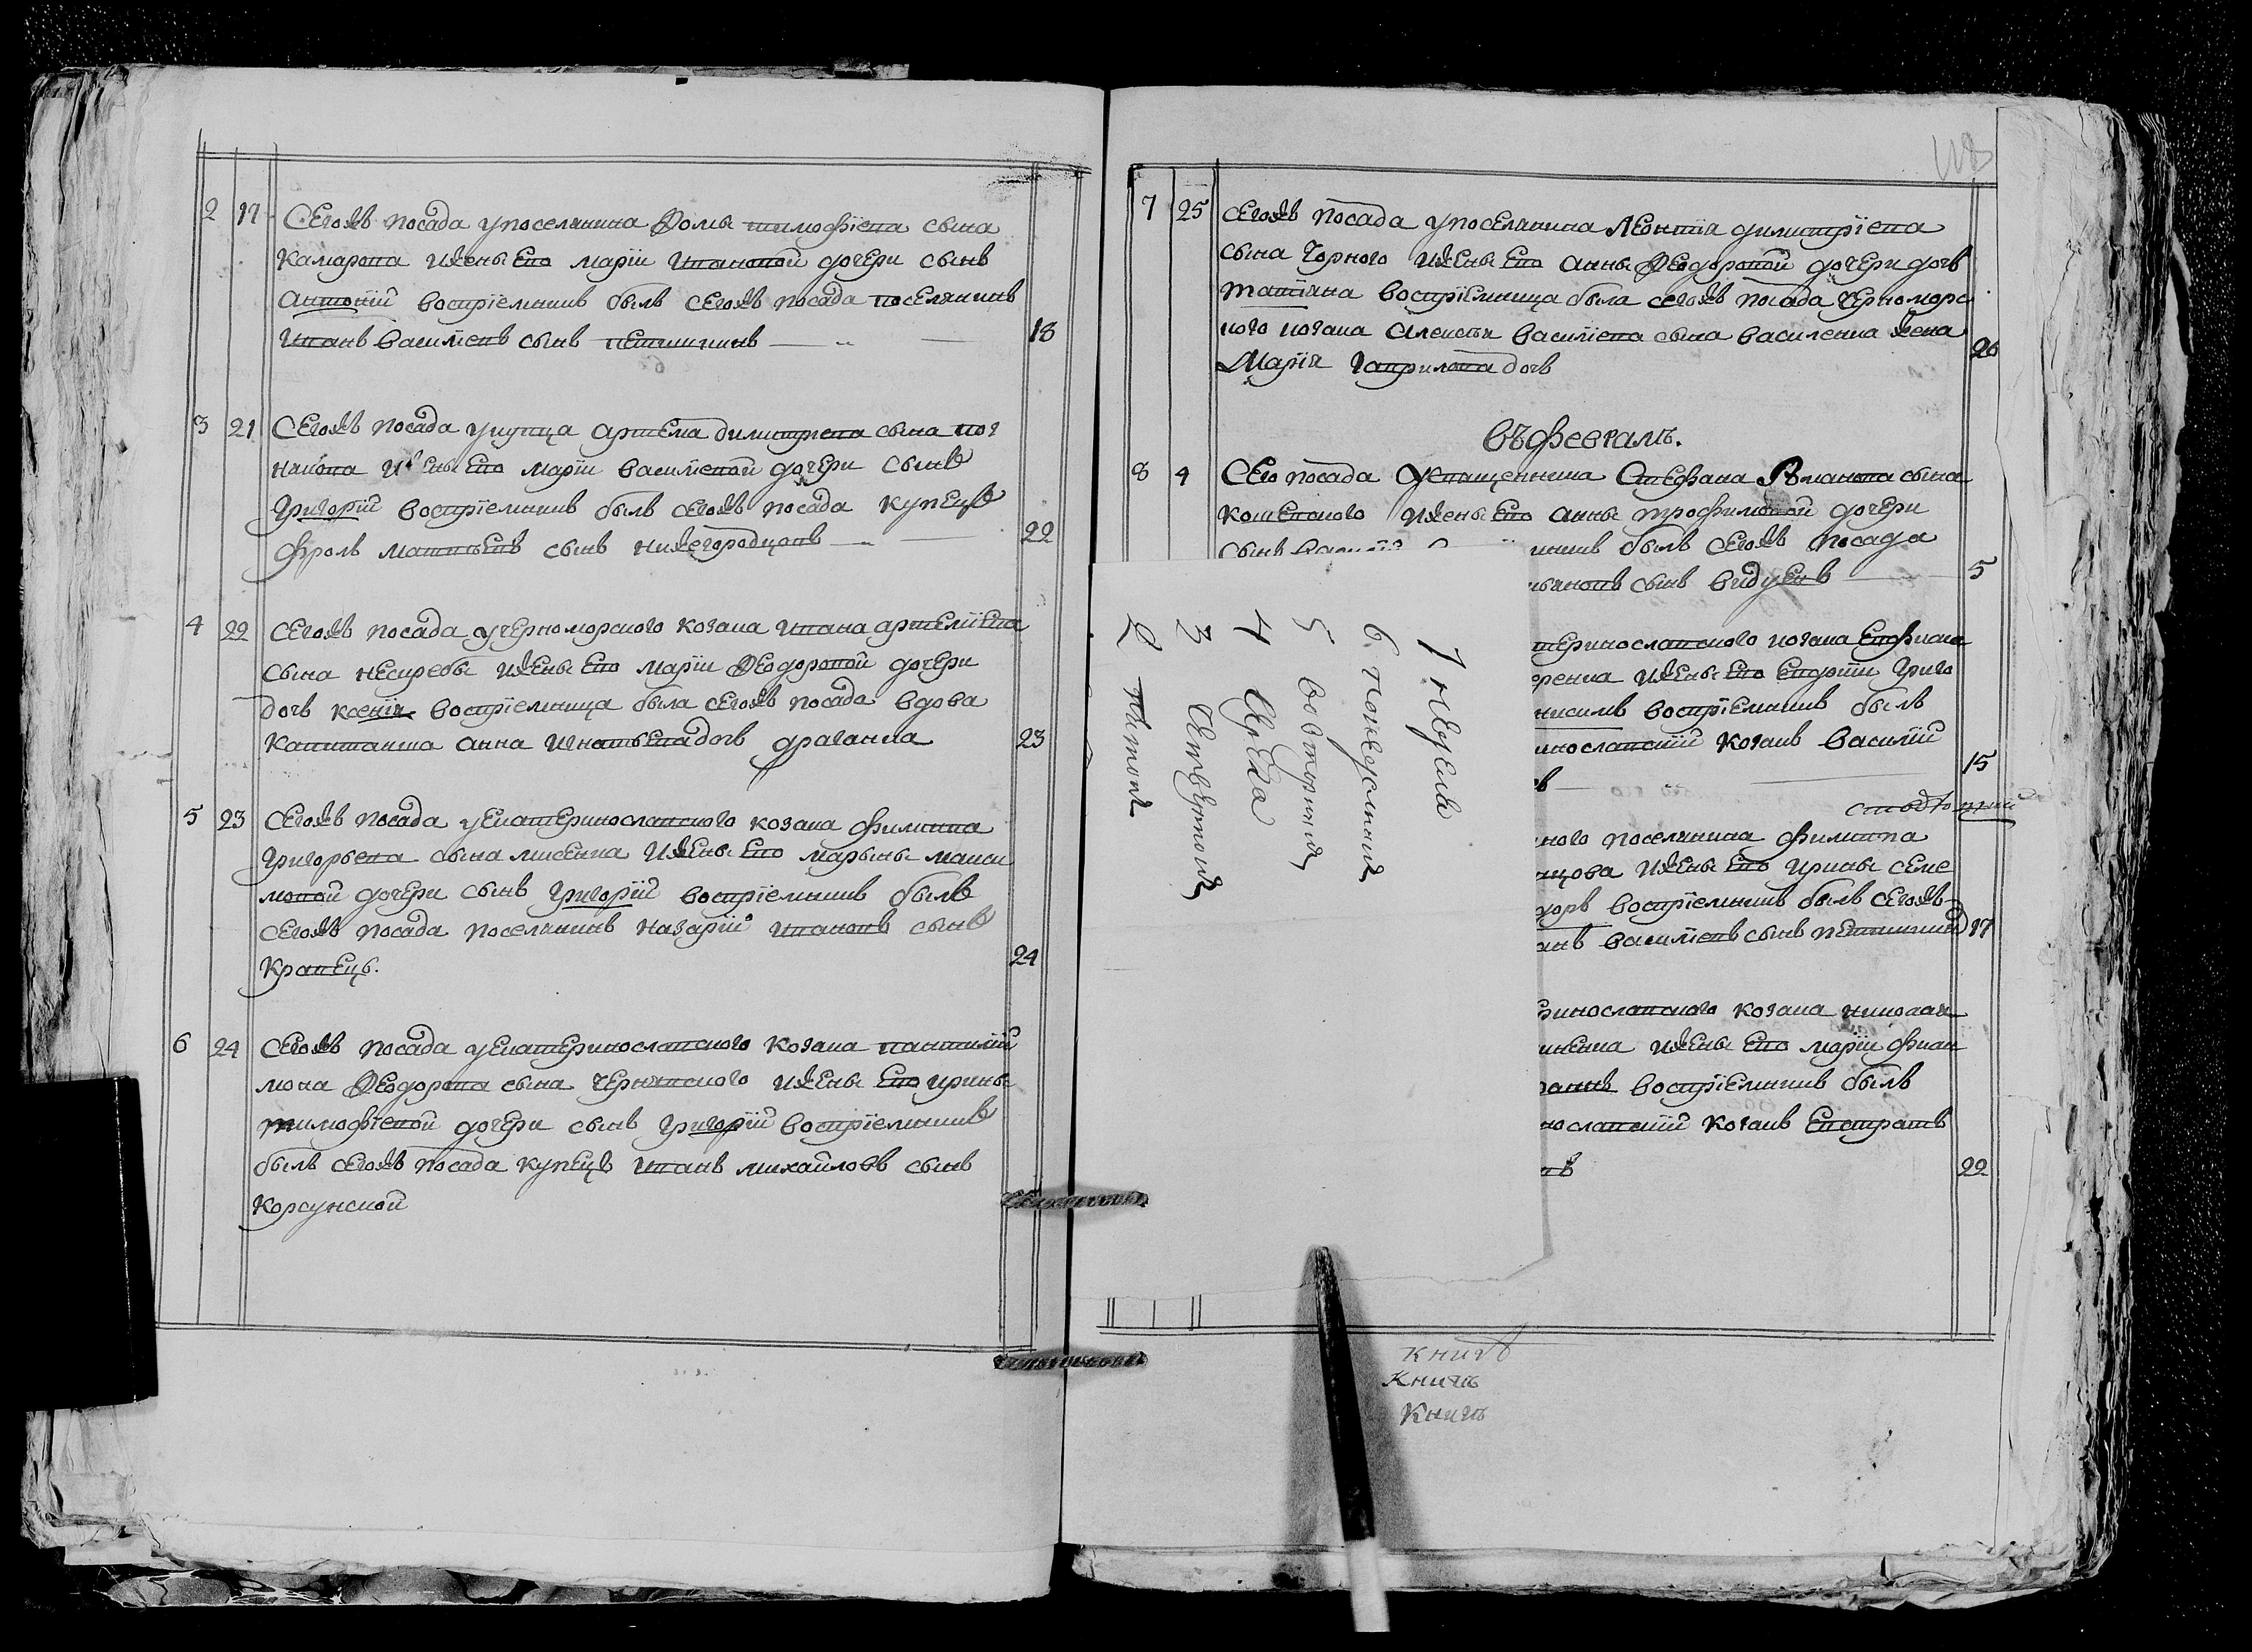 2 17 Сегожъ посада у поселянина Фомы тимофіева сына
Камарова ижены его маріи ивановой дочери сынъ
Антоній воспріемникъ былъ сегожъ посада поселянинъ
иванъ василіевъ сынъ 18
3 21 Сегожъ посада у купца Артема димитріева сына
ижены его маріи василіевой дочери сынъ
Григорій воспріемникъ былъ сегожъ посада купецъ
фролъ матвѣевъ сынъ нижегородцовъ 22
4 22 Сегожъ посада у черноморского козака ивана артеміева
сына нескребы ижены его маріи Феодоровой дочери
дочь ксенія воспріемница была сегожъ посада вдова
Капитанша анна игнатьева дочь драганка 23
5 23 Сегожъ посада у екатеринославского козака филиппа
Григорьева сына лисенка ижены его марьины макси
мовой дочери сынъ Григорій воспріемникъ былъ
сегожъ посада поселянинъ назарій ивановъ сынъ
Кравецъ. 24
6 24 Сегожъ посада у екатеринославского козака пантилій
мона Феодорова сына чернявского ижены его ирины
тимофіевой дочери сынъ Григорій воспріемникъ
былъ сегожъ посада купецъ иванъ михайловъ сынъ
Корсунской
7 25 Сегожъ посада у поселянина Леонтія димитріева
сына Чорного ижены его анны Феодоровой дочери дочь
татіана воспріемница была сегожъ посада черноморс
кого козака Алексѣя василіева сына василенка жена
Марія Гаврилова дочь 26
въ февралѣ.
8 4 Сего посада священника Стефана Романова сына
Кошевского ижены его анны трофимовой дочери
сынъ никъ былъ сегожъ посада
сынъ видуевъ 5
теринославского козака
ренка ижены его евдокіи Григо
нисимъ воспріемникъ былъ
инославскій козакъ василій
15
ного поселянина филиппа
нцова ижены его ирины семе
доръ воспріемникъ былъ сегожъ
анъ василіевъ сынъ 17
ринославского козака николая
ненка ижены его маріи
воспріемникъ былъ
нославскій козакъ Евстратъ
22
1 недѣля
6. понедѣлникъ
5 вовторникъ
4 середа
3 Четвертокъ
2 пятокъ
книгъ
Книгъ
Книгъ